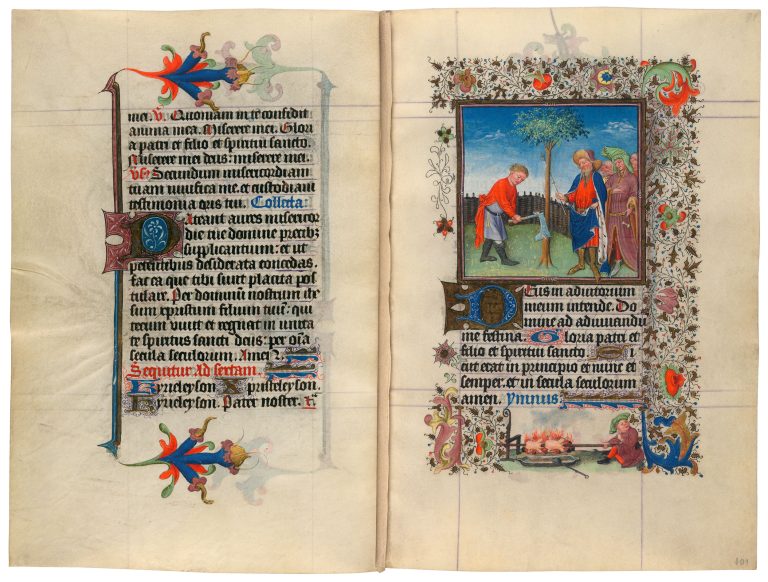 mei. V. Quoniam in te confidit
anima mea. Miserere mei. Glori
a patri et filio et spiritui sancto.
Miserere mei deus: miserere mei.
Secundum misericordiam
tuam vivifica me. et custodiam
testimonia oris tui. Collecta:
Pateant aures misericor
die tue domine precibus
supplicantium: et ut
petentibus desiderata concedas.
fac ea que tibi sunt placita pos
tulare. Per dominum nostrum ihe
sum christum filium tuum: qui
tecum vivit et regnat in unita
te spiritus sancti deus: per omnia
secula seculorum. Amen.
Sequitur Ad sextam.
Kyrieleyson. Xpristeleyson.
Kyrieleyson. Pater noster.
Deus in adiutorium
meum intende. Do
mine ad adiuvandu
me festina. Gloria patri et
filio et spiritui sancto. Si
cut erat in principio et nunc et
semper. et in secula seculorum
amen. Ymnus:
101